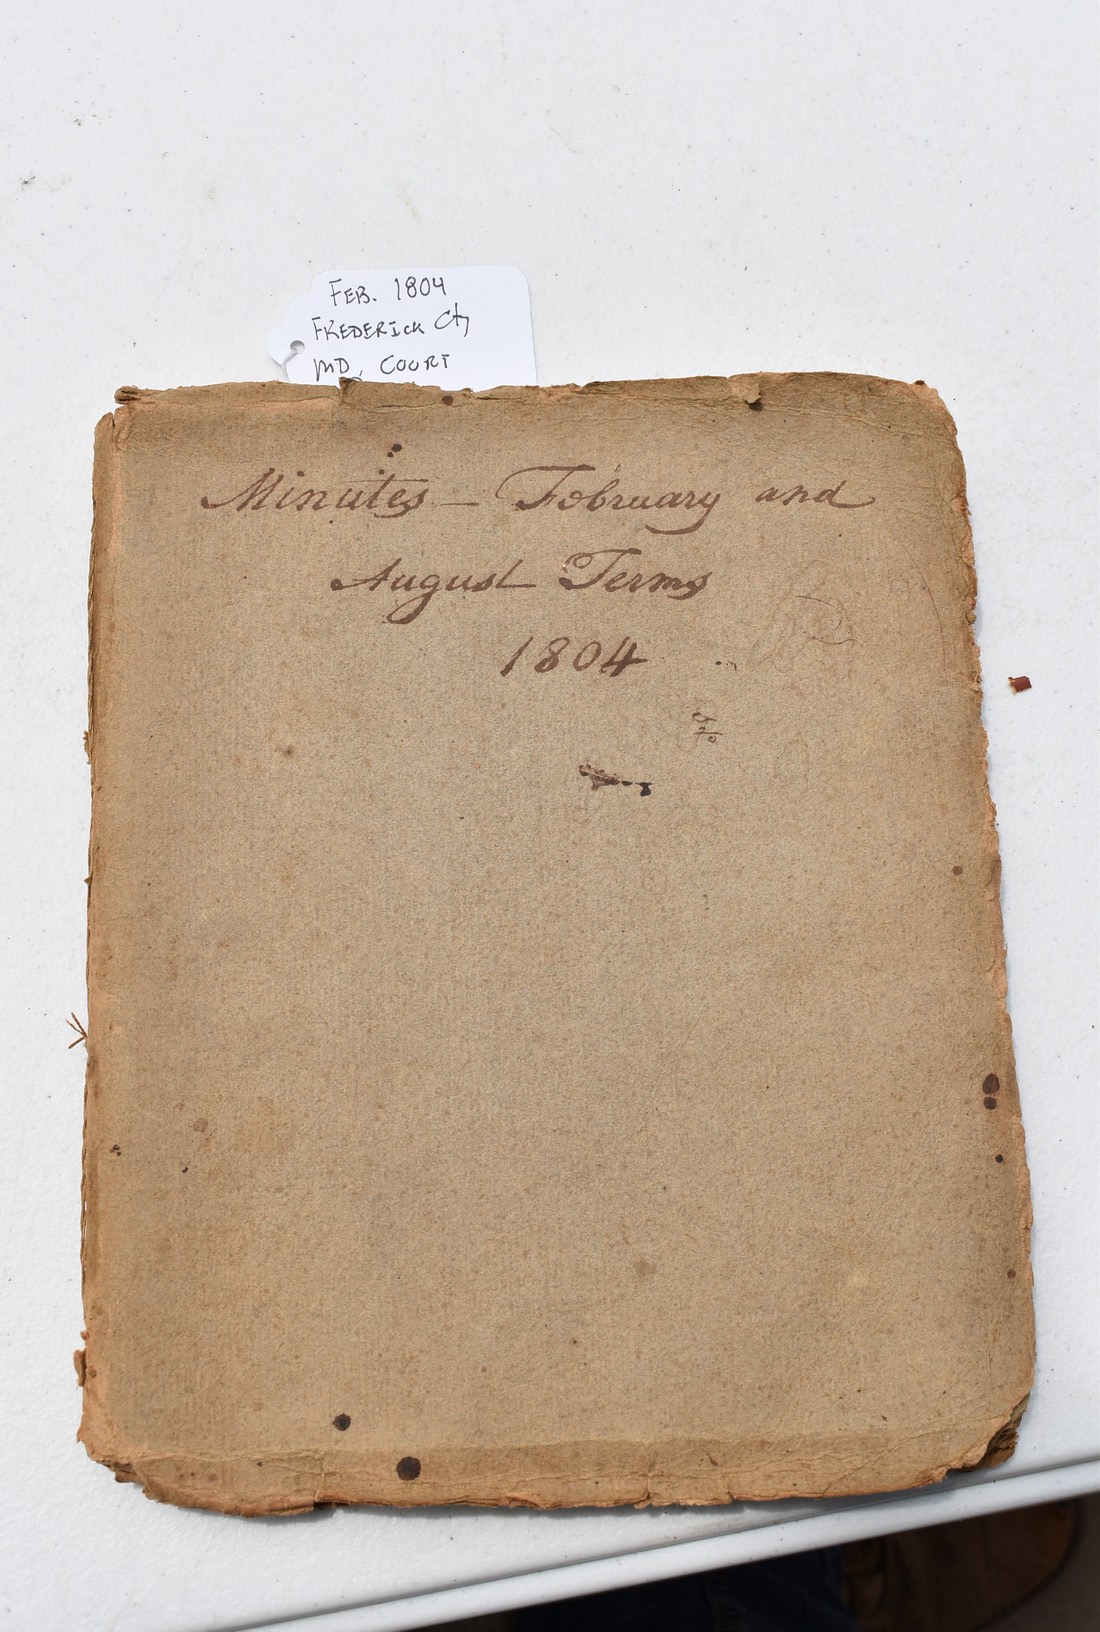 FEB. 1804
FREDERICK Cty
MD, COURT
Minutes — February and
August Terms
1804